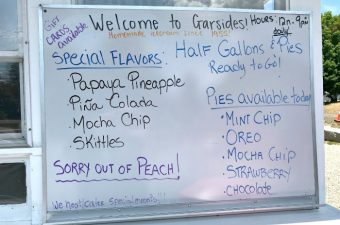 GIFT CARDS available
Welcome to Garsides!
Hours: 12n-9pm
daily
Homemade icecream since 1955!
Special Flavors:
Papaya Pineapple
Piña Colada
· Mocha Chip
· Skittles
Sorry out of Peach!
Half Gallons & Pies
Ready to Go!
Pies available today
· Mint Chip
· Oreo
· Mocha Chip
· Strawberry
· Chocolate
We
special